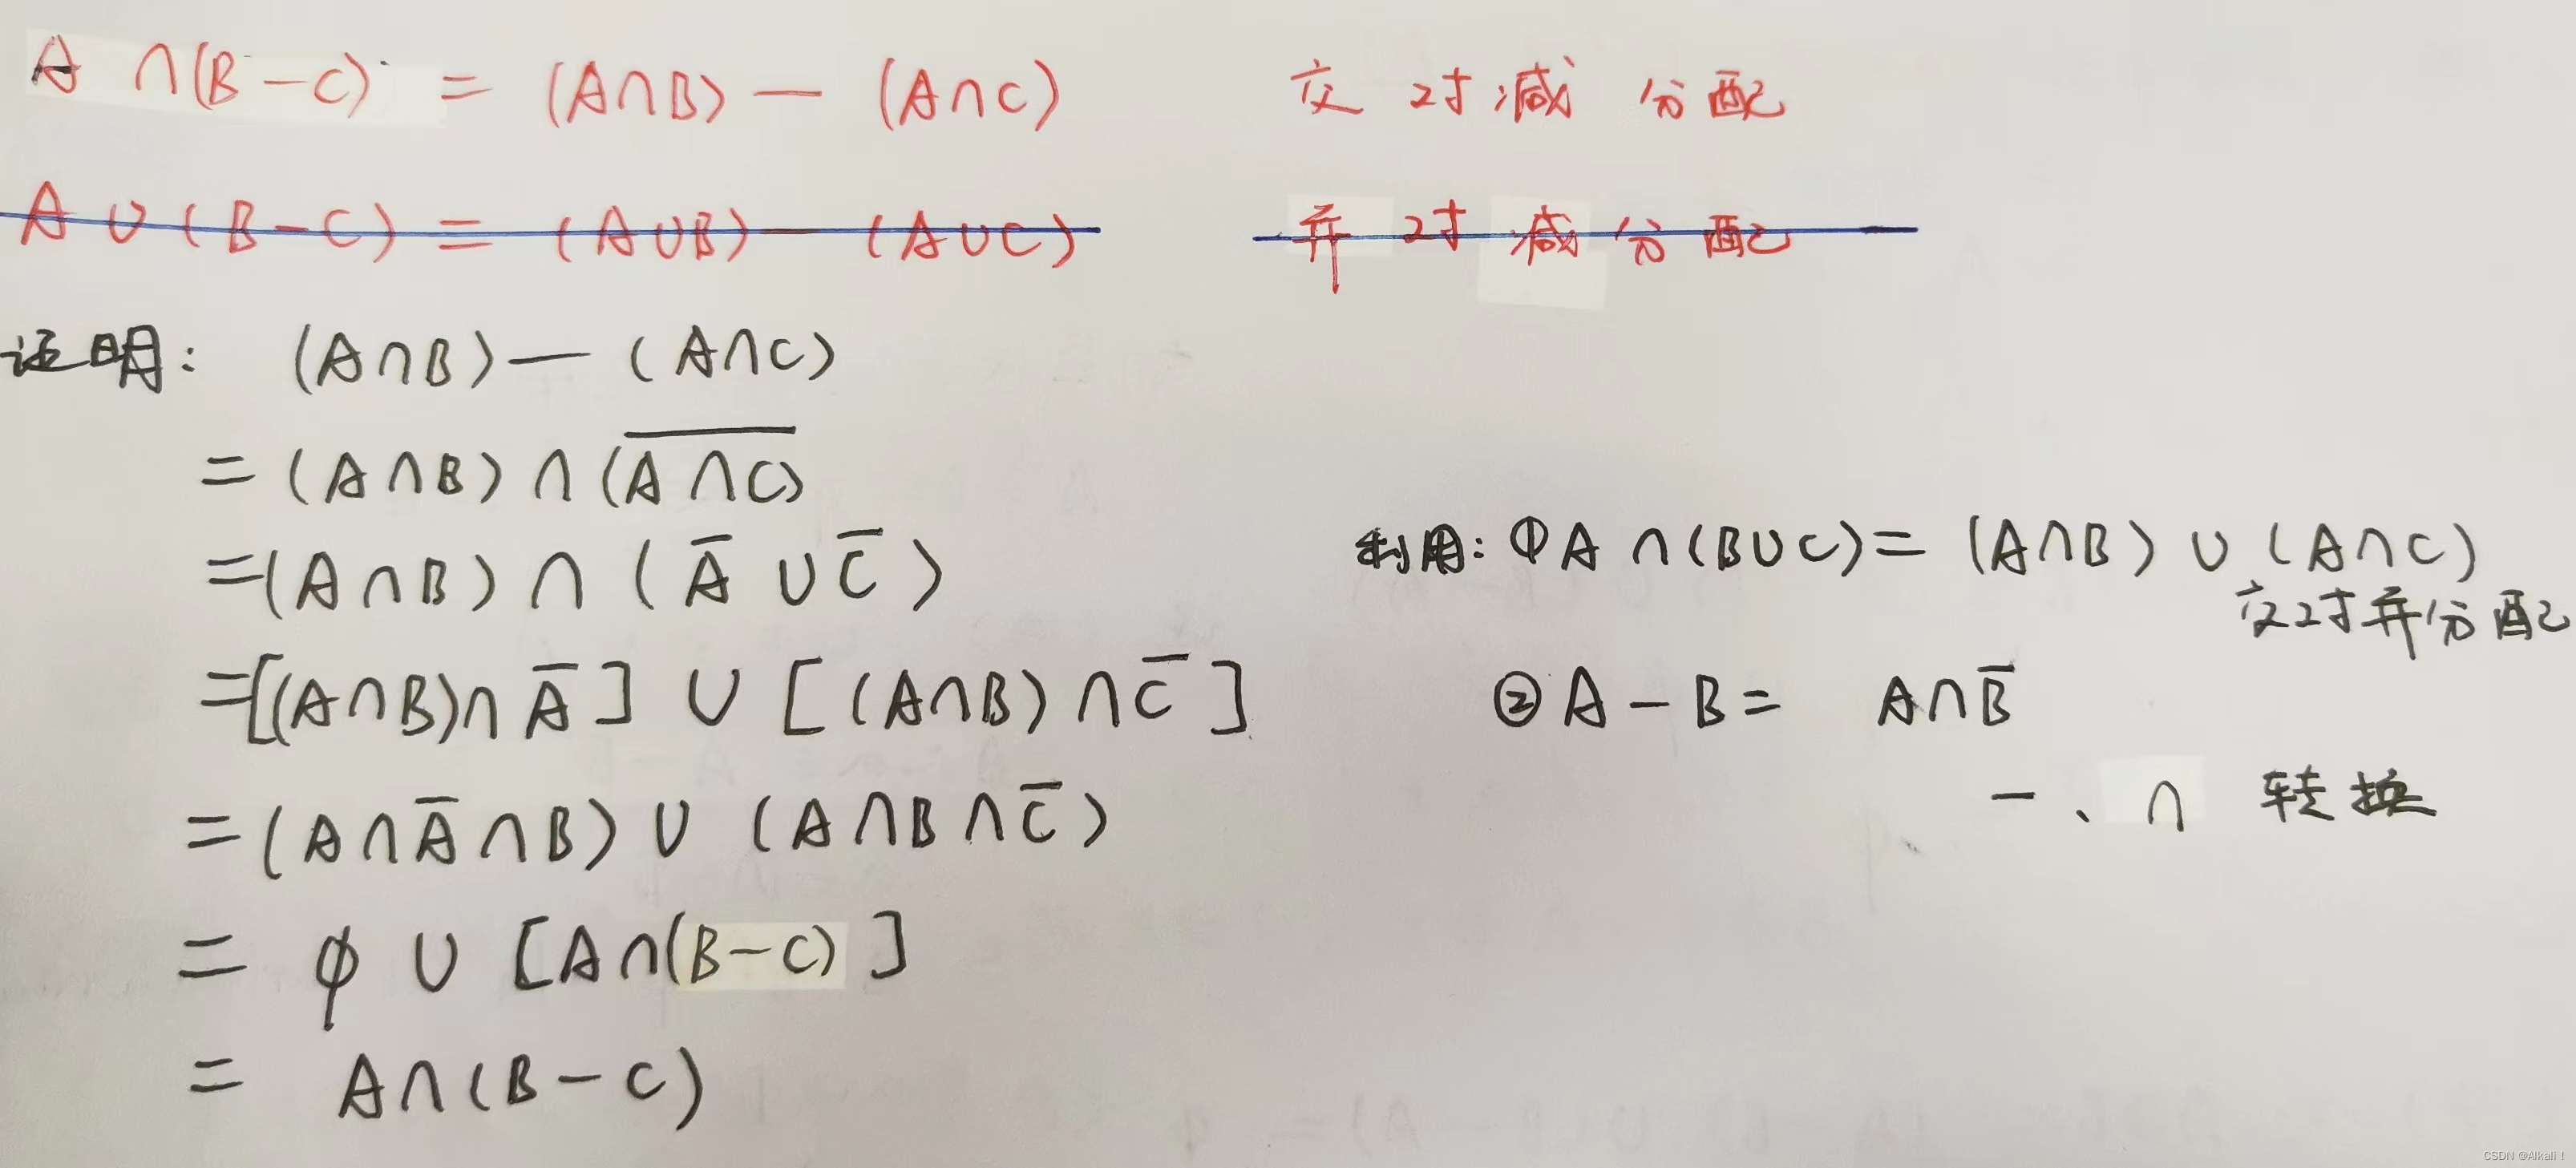 A ∩(B-C) = (A∩B) — (A∩C) 交对减分配
A∪(B-C) = (A∪B) — (A∪C) 并对减分配
证明: (A∩B) — (A∩C)
= (A∩B) ∩ (\overline{A∩C})
= (A∩B) ∩ (A̅ ∪ C̅)
= [(A∩B)∩A̅] ∪ [(A∩B)∩C̅]
= (A∩A̅∩B) ∪ (A∩B∩C̅)
= ϕ ∪ [A∩(B-C)]
= A∩(B-C)
利用: ① A∩(B∪C) = (A∩B) ∪ (A∩C)
交对并分配
② A - B = A∩B̅
-、∩ 转换
CSDN @Alkali！